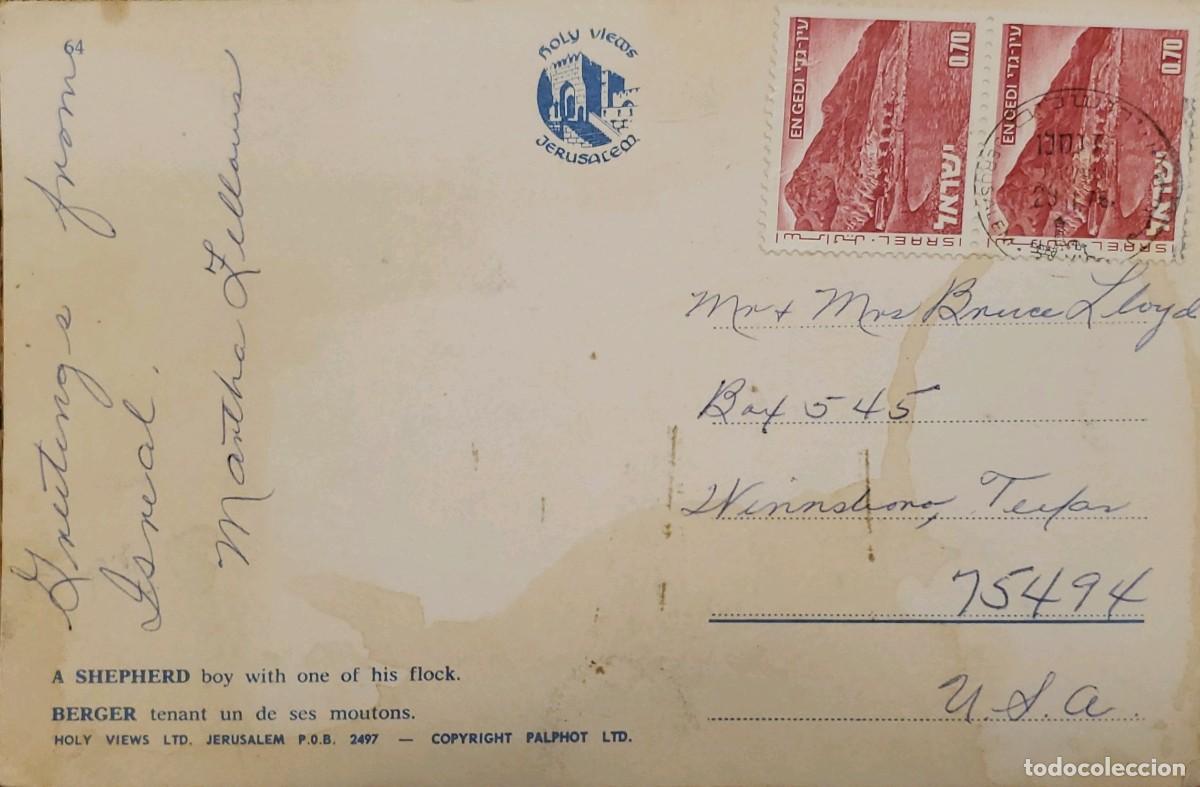 64
Greetings from
Isreal.
Martha Fellows
HOLY VIEWS
JERUSALEM
EN GEDI עין-גדי
0.70
ישראל
ISRAEL
EN GEDI עין-גדי
0.70
ישראל
ISRAEL
JERUSALEM
Mr & Mrs Bruce Lloyd
Box 545
Winnsboro, Texas
75494
U.S.A.
A SHEPHERD boy with one of his flock.
BERGER tenant un de ses moutons.
HOLY VIEWS LTD. JERUSALEM P.O.B. 2497 — COPYRIGHT PALPHOT LTD.
todocoleccion